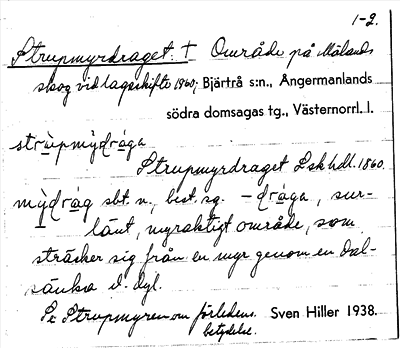 1-2.
Strupmyrdraget: † Område på Mälands
skog vid lagaskifte 1860; Bjärtrå s:n., Ångermanlands
södra domsagas tg., Västernorrl. l.
strùpmỳdrága
Strupmyrdraget Lskhdl. 1860.
mỳdrág sbt. n., best. sg. -drága, sur-
länt, myraktigt område, som
sträcker sig från en myr genom en dal-
sänka o. dyl.
Se Strupmyren om förledens
betydelse. Sven Hiller 1938.